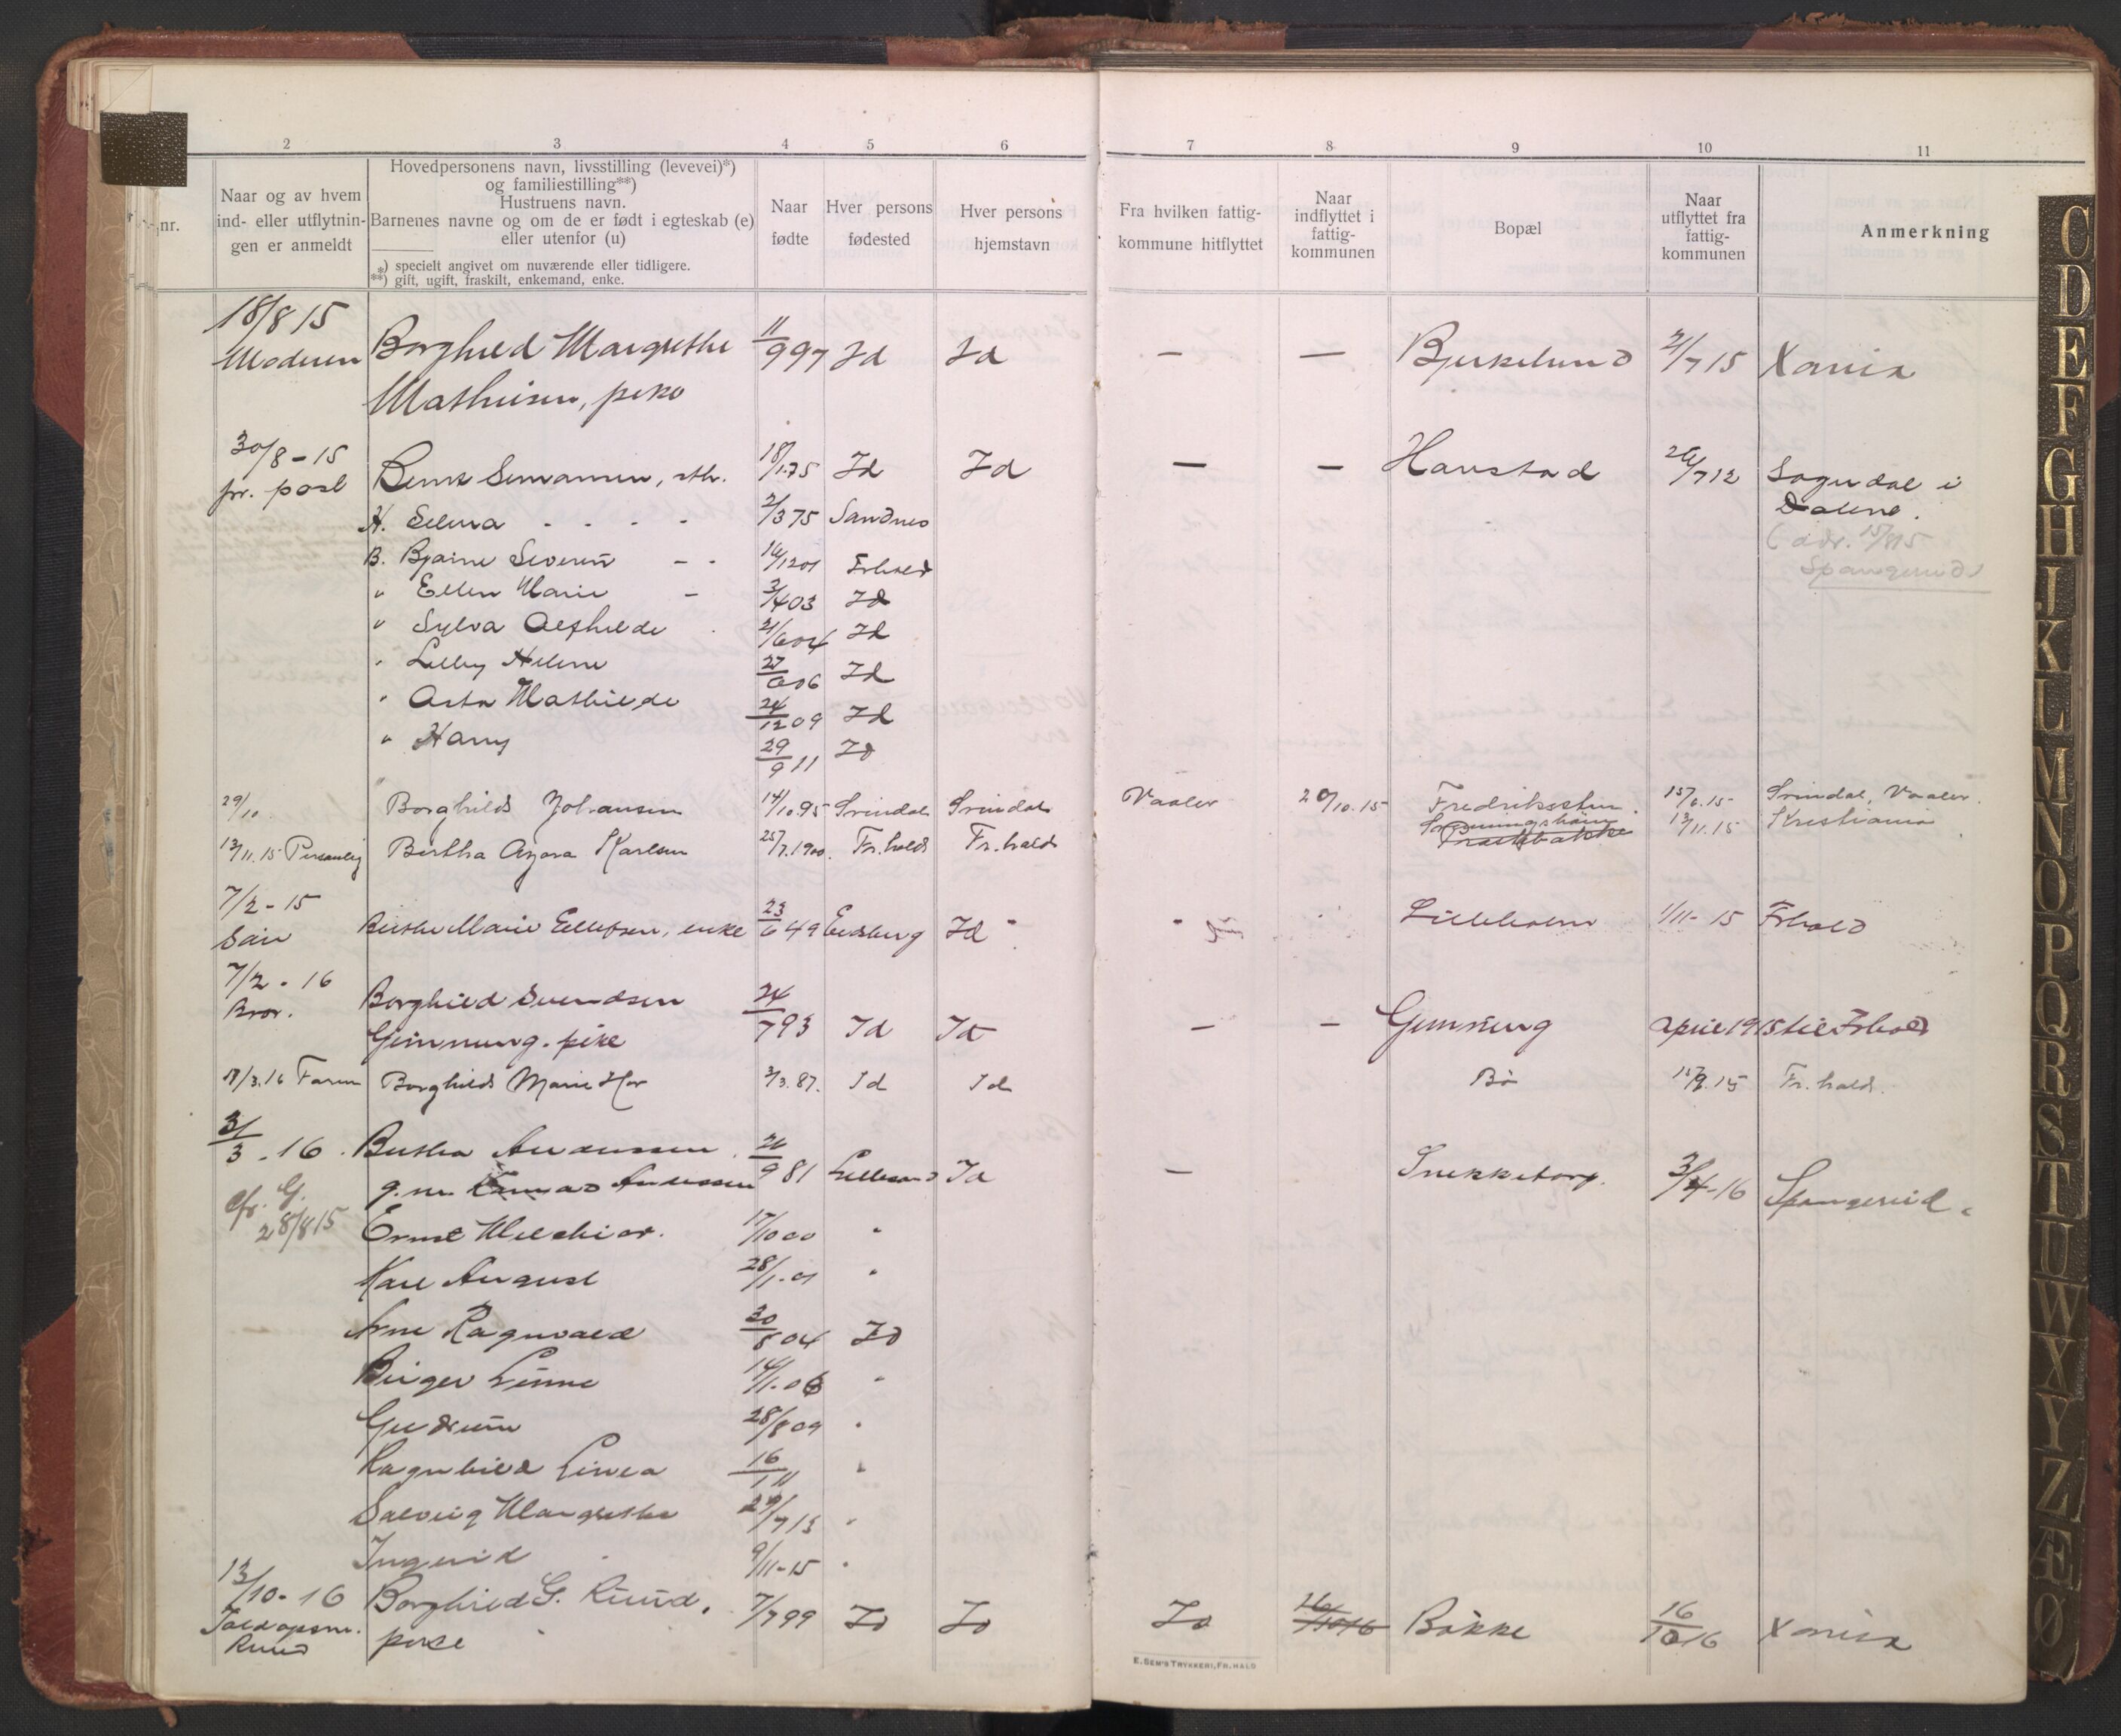 2 3 4 5 6 7 8 9 10 11
nr.
Naar og av hvem
ind- eller utflytnin-
gen er anmeldt
Hovedpersonens navn, livsstilling (levevei)*)
og familiestilling**)
Hustruens navn.
Barnenes navne og om de er født i egteskab (e)
eller utenfor (u)
*) specielt angivet om nuværende eller tidligere.
**) gift, ugift, fraskilt, enkemand, enke.
Naar
fødte
Hver persons
fødested
Hver persons
hjemstavn
Fra hvilken fattig-
kommune hitflyttet
Naar
indflyttet i
fattig-
kommunen
Bopæl
Naar
utflyttet fra
fattig-
kommunen
Anmerkning
18/8 15
Moderen Borghild Margrethe 11/9 97 Id Id — — Bjerkelund 2/7 15 Xania
Mathisen, pike
30/8 - 15
pr. post Bernt Simansen, sth. 18/1 75 Id Id — — Havstad 26/7 12 Sogndal i
Dalene.
H. Selma - - - - 2/3 75 Sandnes
(adr. 15/8 15
B. Bjarne Severin - - 16/12 01 Frhald
Spangereid)
" Ellen Marie - 3/4 03 Id
" Sylva Alfhilde 21/6 04 Id
" Lilly Helene 27/6 06 Id
" Asta Mathilde 24/12 09 Id
" Harry 29/9 11 Id
29/10. Borghild Johansen 14/10.95 Svindal Svindal Vaaler 20/10.15 Fredriksten 15/6.15 Svindal, Vaaler.
13/11.15 Personlig Bertha Azora Karlsen 25/7.1900. Fr.hald Fr.hald 13/11.15 Kristiania
7/2 - 15
Søn Berthe Marie Ellefsen, enke 23/6 49 Eidsberg Id " " Lilleholm 1/11 - 15 Frhald
7/2 - 16
Bror. Borghild Svendsen 24/7 93 Id Id — — Gimming april 1915 til Frhald
Gimming. pike
17/3.16 Faren Borghild Marie Hov 3/3.87. Id Id Bø 15/9.15 Fr.hald.
3/3 - 16. Bertha Andersen. 26/9 81 Lillesand Id — Snekkeborg. 3/4 - 16 Spangereid.
g.m. Konrad Andersen
cfr. G.
28/8 15
Ernst Melchior. 17/10 00 "
Karl August 28/1.01 "
Arne Ragnvald 30/8 04 Id
Birger Linne 14/1.06 "
Gudrun 28/8 09 "
Ragnhild Linea 16/1 11 "
Solveig Margrethe 29/7 13 "
Ingerid 9/11 - 15 "
13/10 - 16 Borghild G. Ruud, 7/7 99 Id Id Id 16/10 16 Bakke 16/10 16 Xania
Toldopsm.
Ruud
pike
E. SEM'S TRYKKERI, FR.HALD
C
D
E
F
G
H
J
K
L
M
N
O
P
Q
R
S
T
U
W
X
Y
Z
Æ
Ø